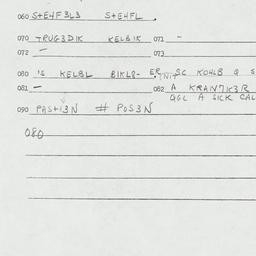 060 S+E4F3L3 S+E4FL .
070 TRUG3DIK KELBIK 071 -
072 - 073
080 'S KELBL BIKL8- SC KOHLB Q S
081 - 082 A KRAN7K3R
QGL A SICK CAL
090 PAS+13N # POS3N
080